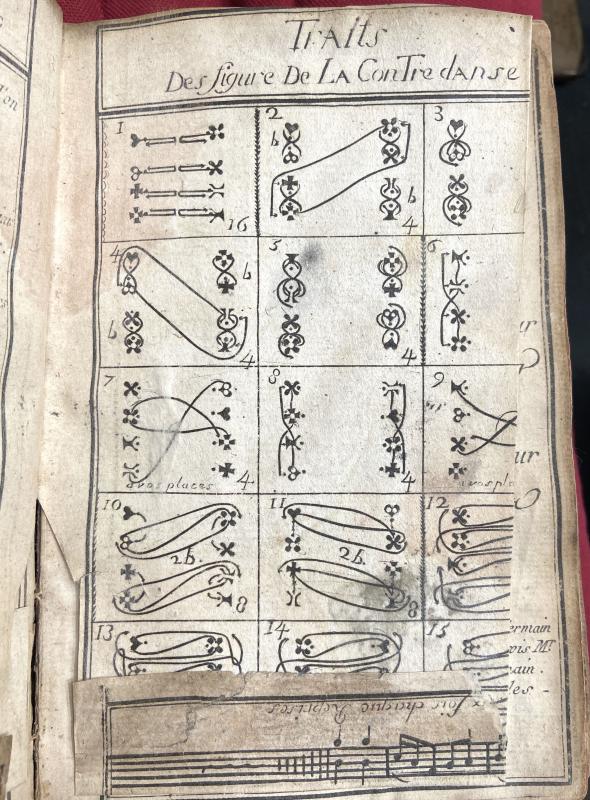 Traits
Des figure De LA ConTredanse
1
16
2
b
b
4
3
4
b
b
4
5
4
6
7
a vos places
4
8
4
9
a vos pla
10
2b.
8
11
2b.
8
12
13
14
15
ur
ur
ermain
ois Mr
ain.
les -
x fois chaque Reprises